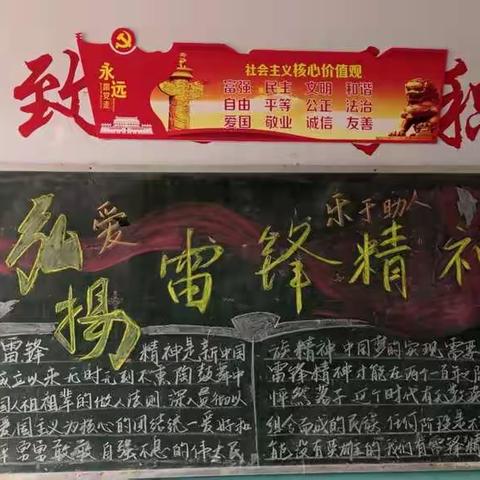 致
永远
跟党走
社会主义核心价值观
富强 民主 文明 和谐
自由 平等 公正 法治
爱国 敬业 诚信 友善
爱
乐于助人
弘揚雷锋精神
雷锋 精神是新中国
成立以来无时无刻不熏陶鼓舞中
国人祖祖辈辈的做人法则 深入
爱国主义为核心的团结统一爱好和
勇敢 自强不息的伟大民
族精神 中国梦的实现需要
雷锋精神才能在两个一百年之
这个时代有无数英
组合而成的民族 任何阶段是不
能没有英雄的 我们有雷锋精